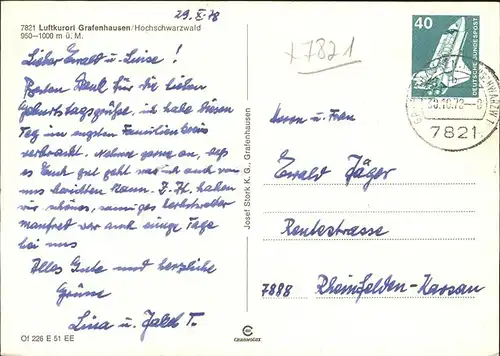 29.X.78
7821 Luftkurort Grafenhausen/Hochschwarzwald
950—1000 m ü. M.
Lieber Ewald u. Luise !
Besten Dank für die lieben
Geburtstagsgrüße, ich habe diesen
Tag im engsten Familienkreis
verbracht. Nehme gerne an, daß
es Euch gut geht was ich auch von
uns berichten kann. Z. Zt. haben
wir schönes, sonniges Herbstwetter
Manfred war auch einige Tage
bei uns
Alles Gute und herzliche
Grüsse
Lina u. Jakob T.
Of 226 E 51 EE
Josef Stork K. G., Grafenhausen
cramolux
+7821
40
DEUTSCHE BUNDESPOST
30.10.78
7821
Herrn u. Frau
Ewald Jäger
Rentestrasse
7888 Rheinfelden-Karsau